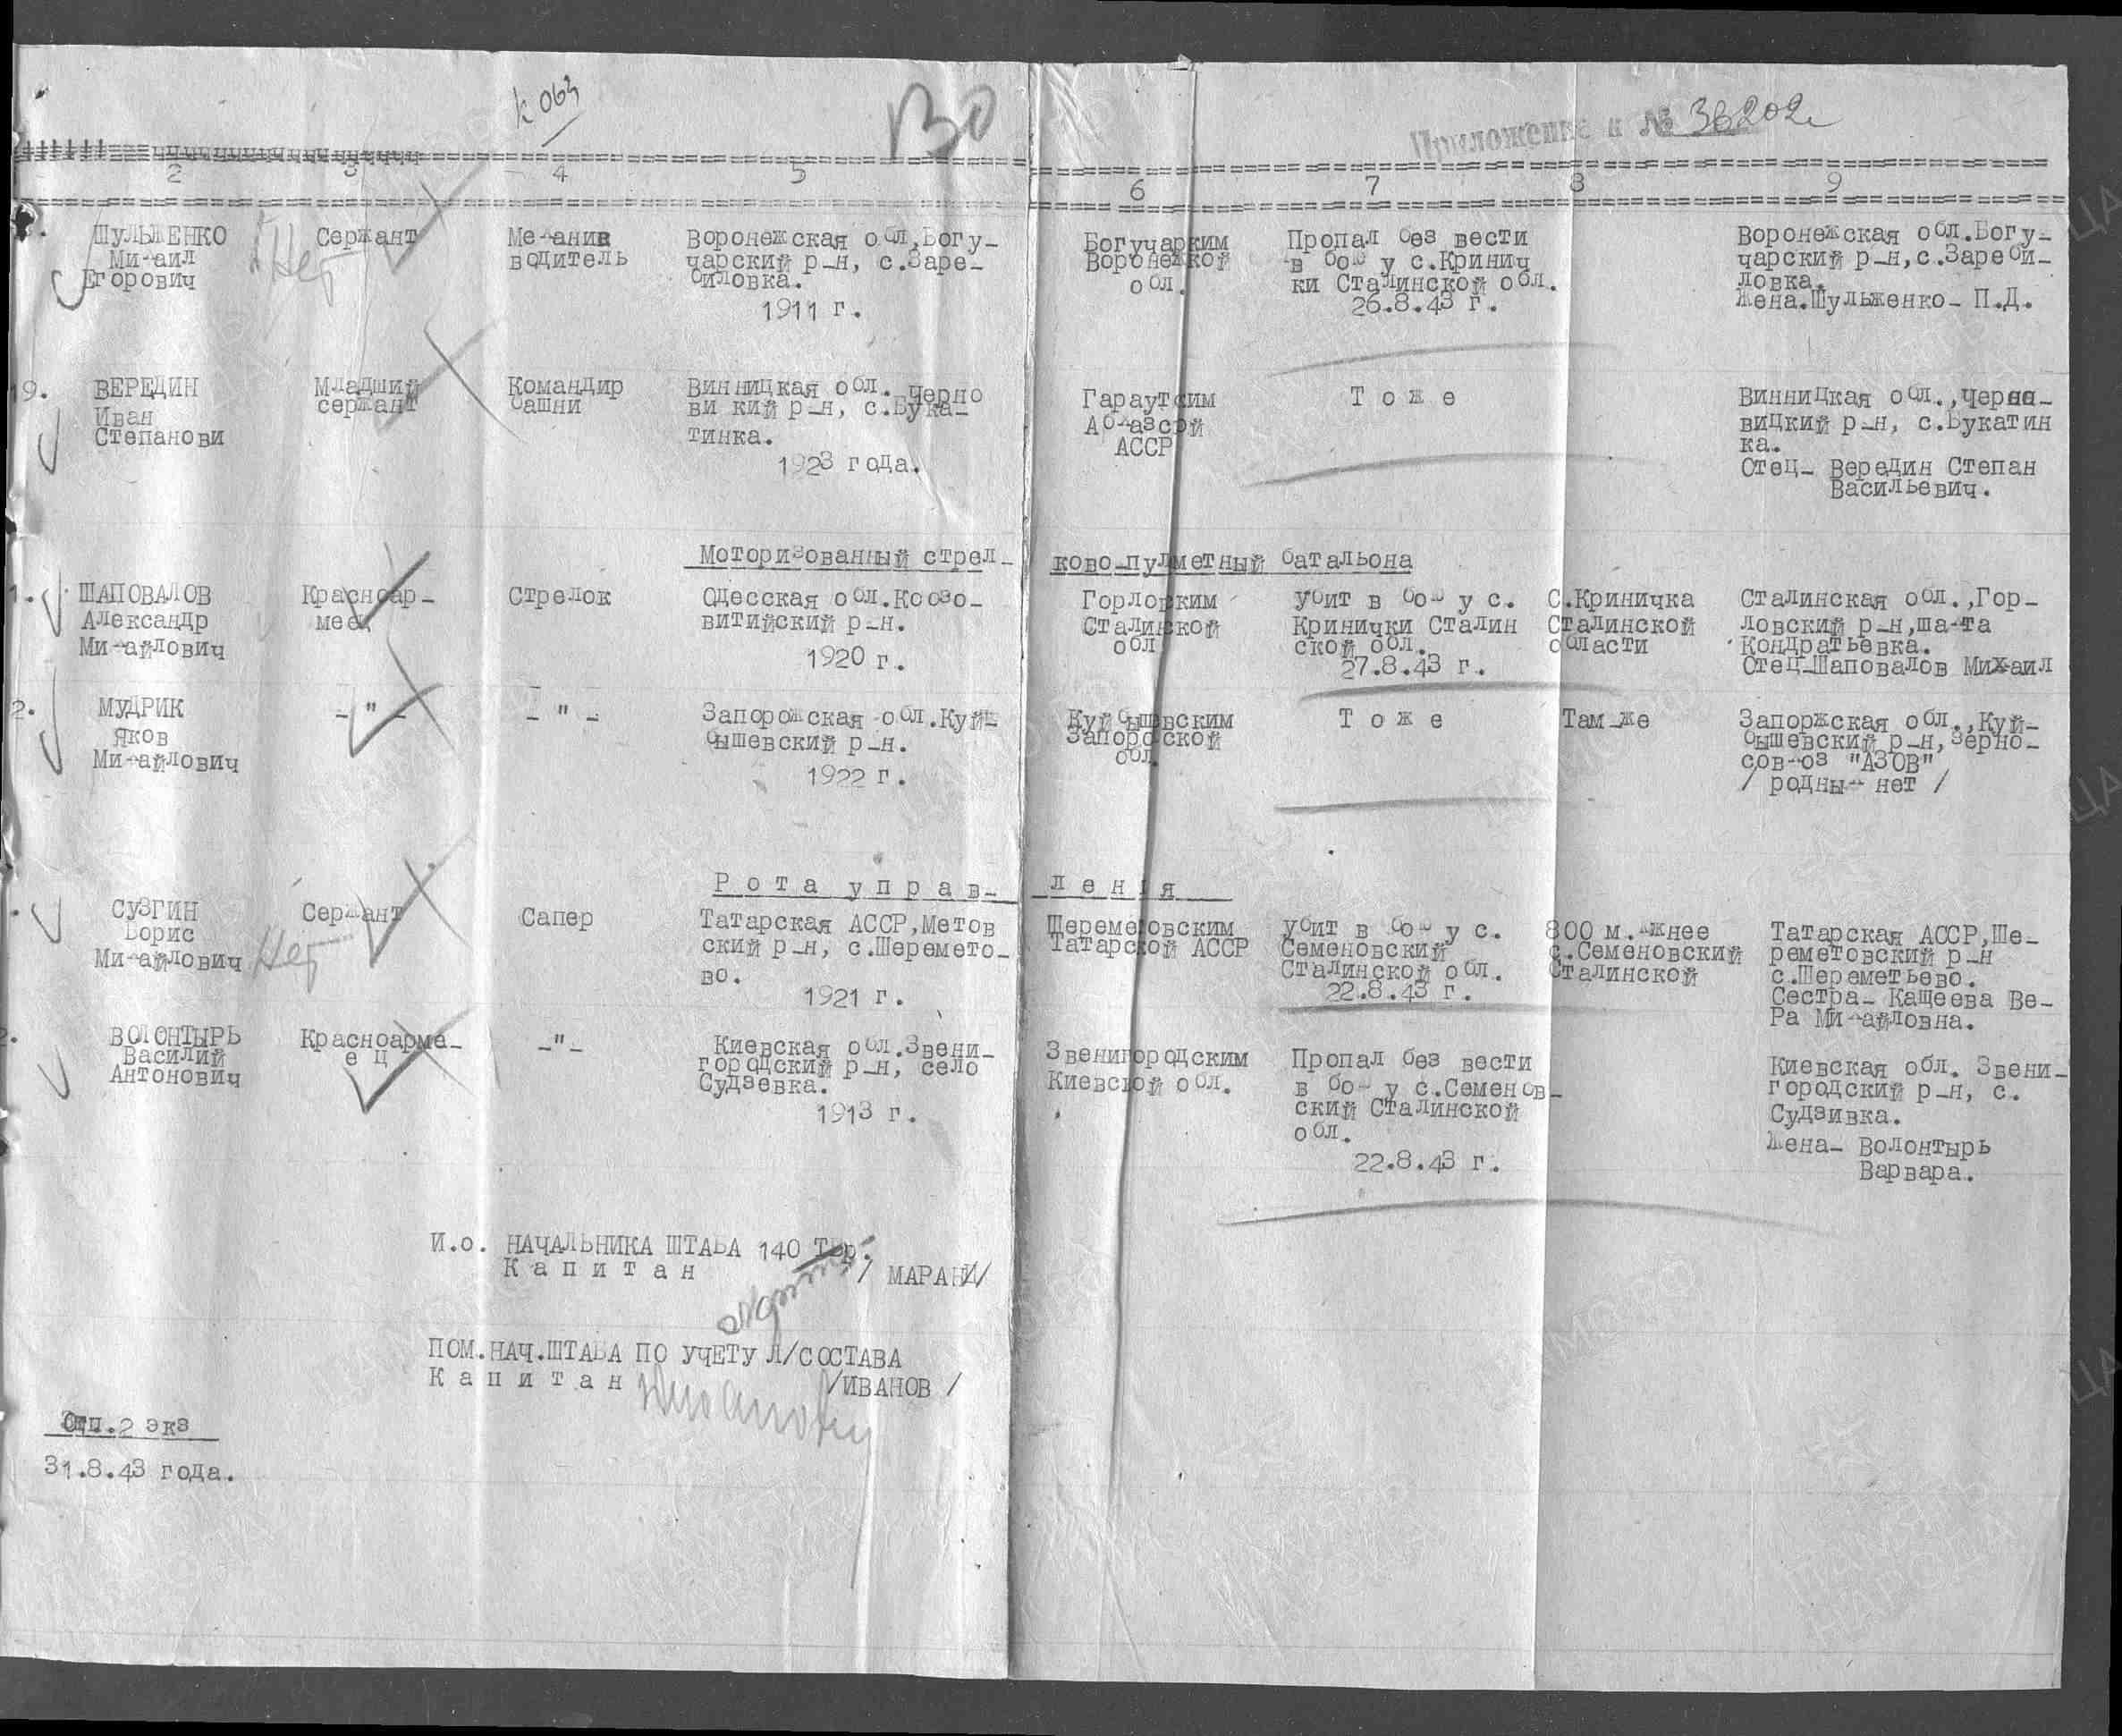 к 063
130
Приложение к № 36202с
2 3 4 5 6 7 8 9
ШУЛЬЖЕНКО
Михаил
Егорович
Нет
Сержант
Механик
водитель
Воронежская обл,Богу-
чарский р-н, с.Заре-
биловка.
1911 г.
Богучарким
Воронежкой
обл.
Пропал без вести
в бою у с.Кринич
ки Сталинской обл.
26.8.43 г.
Воронежская обл.Богу-
чарский р-н,с.Зареби-
ловка.
Жена.Шульженко- П.Д.
19.
ВЕРЕДИН
Иван
Степанови
Младший
сержант
Командир
башни
Винницкая обл. Черно
ви кий р-н, с.Бука-
тинка.
1923 года.
Гараутским
Абхазской
АССР
Т о ж е
Винницкая обл.,Черно-
вицкий р-н, с.Букатин
ка.
Отец- Вередин Степан
Васильевич.
Моторизованный стрел-
ково-пулметный батальона
1.
ШАПОВАЛОВ
Александр
Михайлович
Красноар-
меец
Стрелок
Одесская обл.Косзо-
витийский р-н.
1920 г.
Горловским
Сталинской
обл
убит в бою у с.
Кринички Сталин
ской обл.
27.8.43 г.
С.Криничка
Сталинской
области
Сталинская обл.,Гор-
ловский р-н,шахта
Кондратьевка.
Отец-Шаповалов Михаил
2.
МУДРИК
Яков
Михайлович
-"-
-"-
Запорожская обл.Куй-
бышевский р-н.
1922 г.
Куйбышевским
Запорожской
обл.
Т о ж е
Там-же
Запоржская обл.,Куй-
бышевский р-н,Зерно-
совхоз "АЗОВ"
/ родных нет /
Р о т а у п р а в-
л е н и я
СУЗГИН
Борис
Михайлович
Нет
Сержант
Сапер
Татарская АССР,Метов
ский р-н, с.Шеремето-
во.
1921 г.
Шереметовским
Татарской АССР
убит в бою у с.
Семеновский
Сталинской обл.
22.8.43 г.
800 м.южнее
с.Семеновский
Сталинской
Татарская АССР,Ше-
реметовский р-н
с.Шереметьево.
Сестра- Кащеева Ве-
Ра Михайловна.
2.
ВОЛОНТЫРЬ
Василий
Антонович
Красноарме-
ец
-"-
Киевская обл.Звени-
городский р-н, село
Судзевка.
1913 г.
Звенигородским
Киевской обл.
Пропал без вести
в бою у с.Семенов-
ский Сталинской
обл.
22.8.43 г.
Киевская обл. Звени-
городский р-н, с.
Судзивка.
Жена- Волонтырь
Варвара.
И.о. НАЧАЛЬНИКА ШТАБА 140 Тбр.
К а п и т а н / МАРАНИ/
ПОМ.НАЧ.ШТАБА ПО УЧЕТУ Л/СОСТАВА
К а п и т а н /ИВАНОВ /
Отп.2 экз
31.8.43 года.